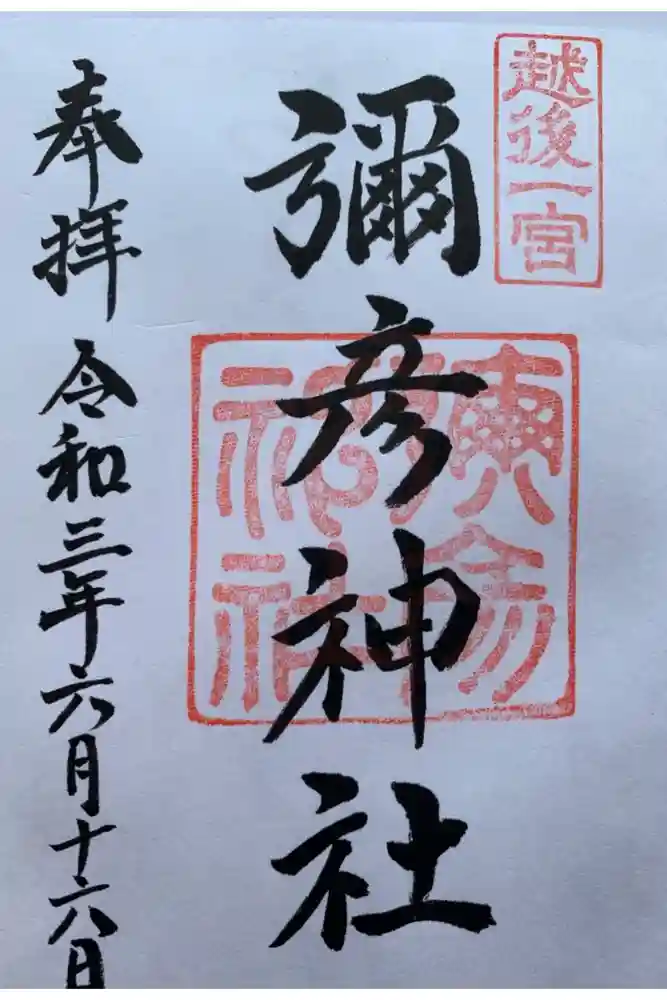 越後一宮
彌彦神社
奉拝 令和三年六月十六日